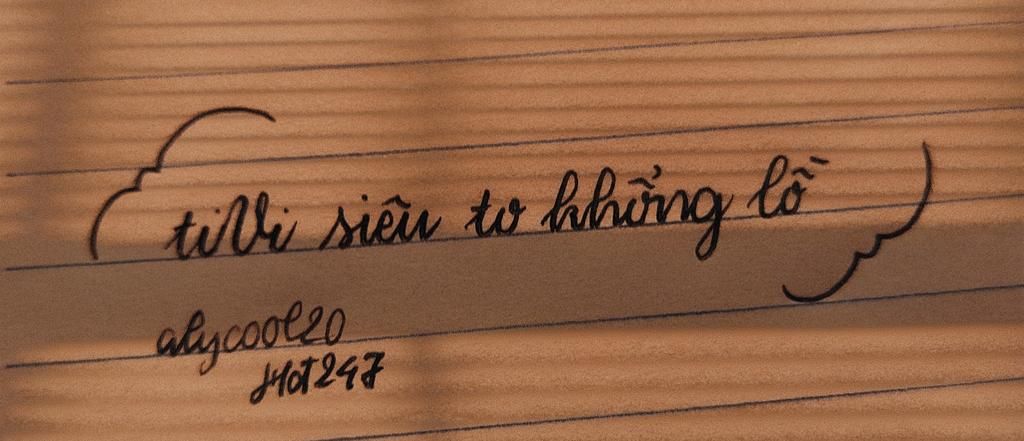 tiVi siêu to khổng lồ
alycool20
Hot247